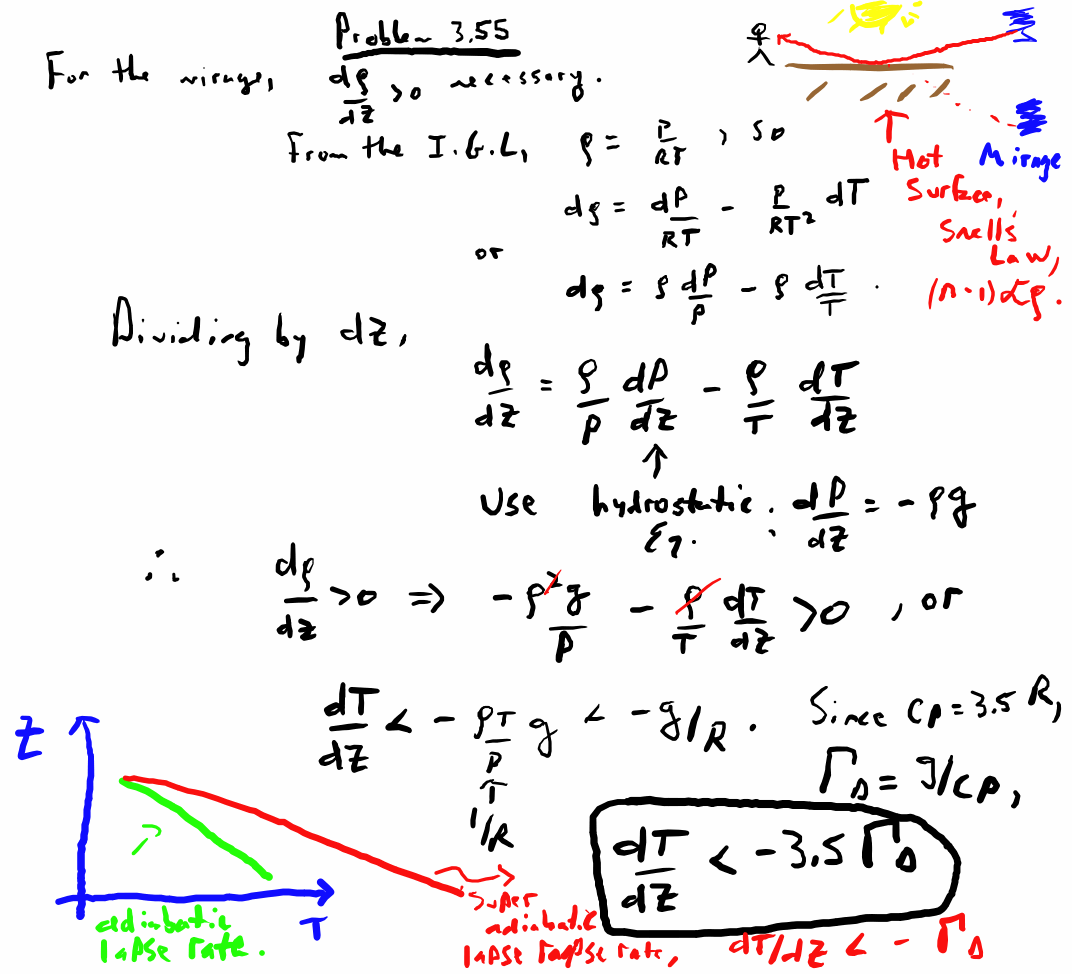 Problem 3.55
For the mirage, dρ/dz >0 necessary.
From the I.G.L, ρ = P/RT , so
dρ = dP/RT - P/RT² dT
or
dρ = ρ dP/P - ρ dT/T .
Hot
Surface,
Snells
Law,
(n-1)∝ρ.
Mirage
Dividing by dz,
dρ/dz = ρ/P dP/dz - ρ/T dT/dz
↑
Use hydrostatic Eq. : dP/dz = - ρg
∴ dρ/dz >0 ⇒ - ρ²g/P - ρ/T dT/dz >0 , or
dT/dz < - ρT/P g < -g/R . Since Cp=3.5 R,
↑
1/R
Γ_D = g/cp,
dT/dz < -3.5 Γ_D
z
T
adiabatic
lapse rate.
Super
adiabatic
lapse rapse rate, dT/dz < - Γ_D